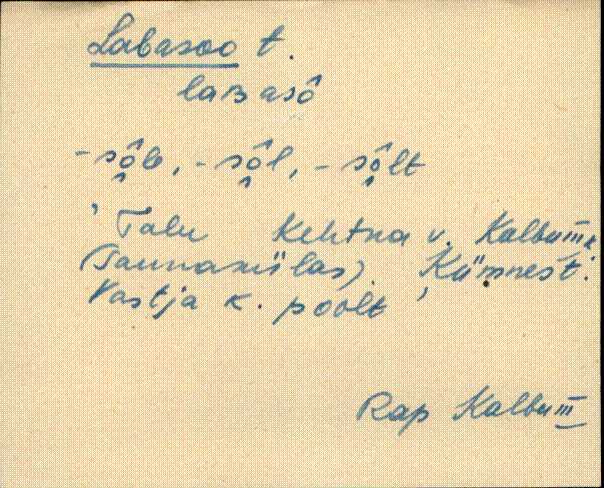 Labasoo t.
laʙasô
-sô̭le, -sô̭l, -sô̭lt
'Talu Kehtna v. Kalbu III k.
(Taunasiilas). Kümnest.
Vastja k. poolt'
Rap Kalbu III